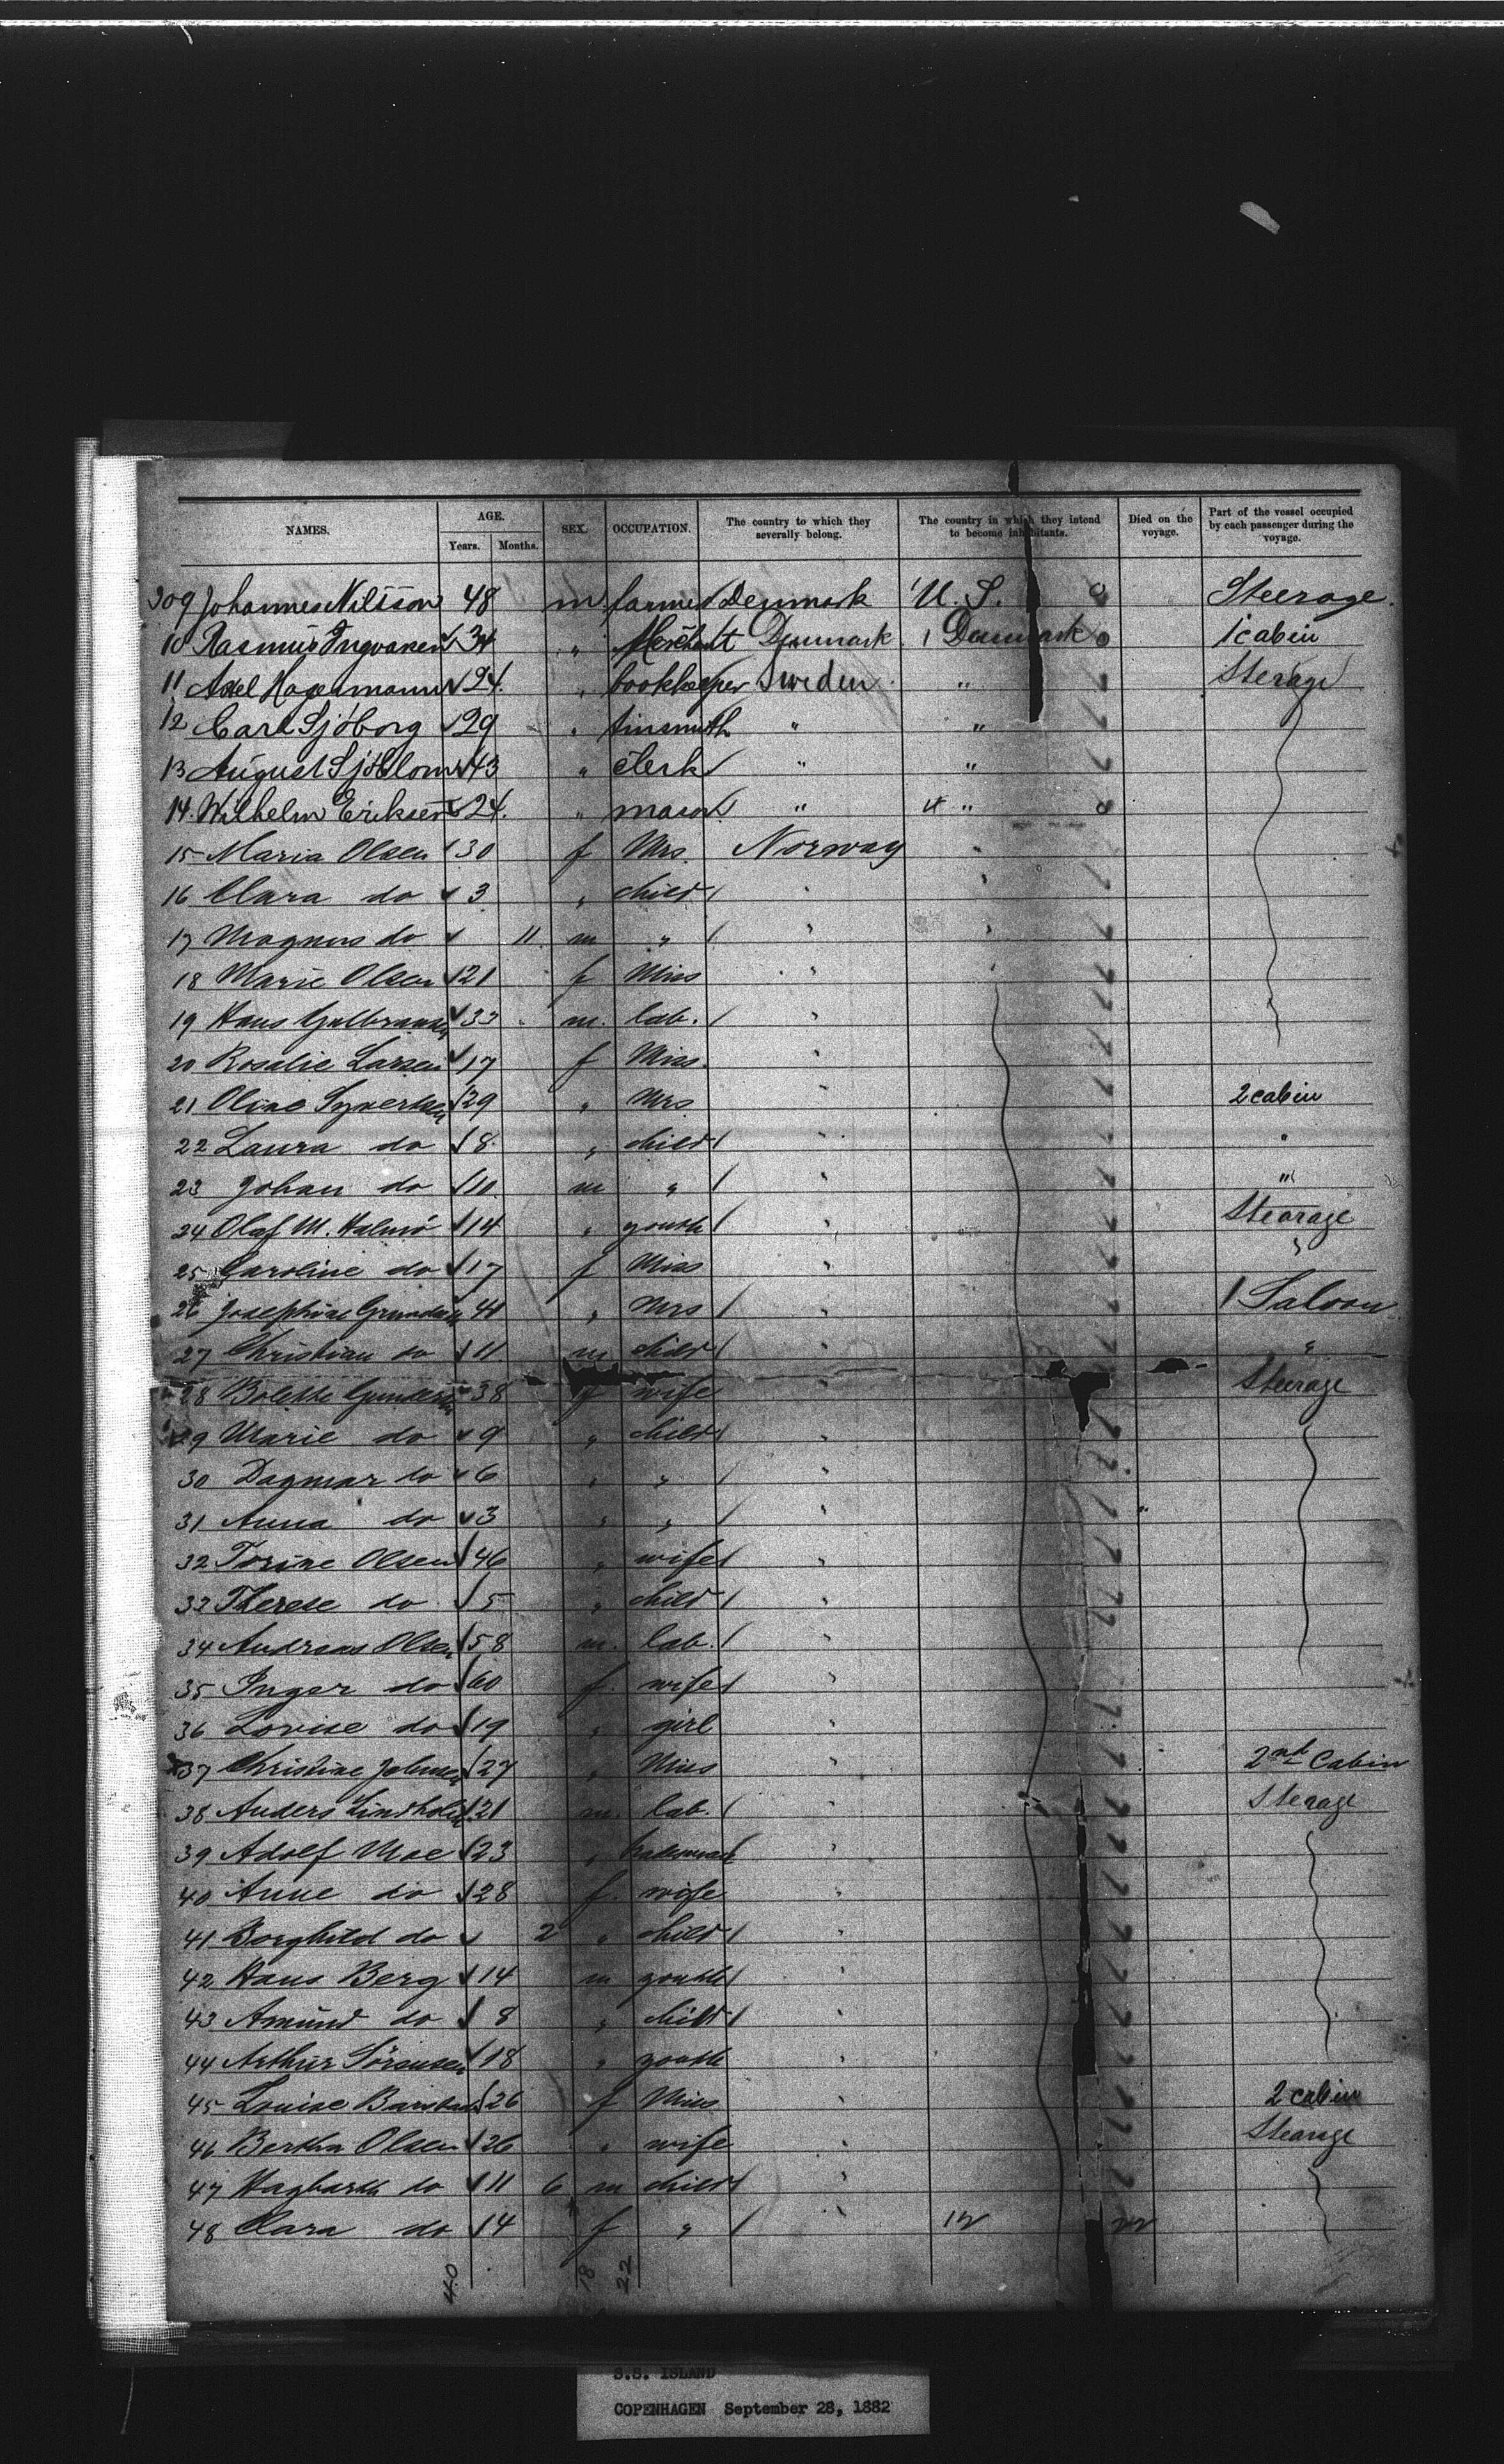 NAMES. AGE. Years. Months. SEX. OCCUPATION. The country to which they severally belong. The country in which they intend to become inhabitants. Died on the voyage. Part of the vessel occupied by each passenger during the voyage.
309 Johannes Nilsson 48 m farmer Denmark U. S. Steerage.
10 Rasmus Ingvarsen 34 " Merchant Denmark 1 Denmark 1 cabin
11 Axel Hagemann 24. " bookkeeper Sweden " Sterage
12 Carl Sjöborg 29 " tinsmith " "
13 August Sjöblom 43 " clerk " "
14. Wilhelm Eriksen 24. " mason " "
15 Maria Olsen 30 f Mrs Norway "
16 Clara do 3 " child " "
17 Magnus do 11 m " " "
18 Marie Olsen 21 f Miss "
19 Hans Gulbransen 33 m. lab. "
20 Rosalie Larsen 17 f Miss. "
21 Oline Syvertsen 29 " Mrs " 2 cabin
22 Laura do 8 " child " "
23 Johan do 10 m " " "
24 Olaf M. 14 " youth " Stearage
25 Caroline do 17 f Miss " "
26 Josephine 41 " Mrs " 1 Saloon
27 Christian do 11 m child " "
28 Bolette Gundersen 38 f wife " Steerage
29 Marie do 9 " child "
30 Dagmar do 6 " " "
31 Anna do 3 " " "
32 Torine Olsen 46 " wife "
33 Therese do 5 " child "
34 Andreas Olsen 58 m. lab. "
35 Inger do 60 f. wife "
36 Lovise do 19 " girl "
37 Christine Johnsen 27 " Miss 2nd Cabin
38 Anders Lindholm 21 m. lab. " Sterage
39 Adolf Moe 23 " tradesman "
40 Anne do 28 f. wife "
41 Borghild do 2 " child "
42 Hans Berg 14 m youth "
43 Amund do 8 " child "
44 Arthur Sörensen 18 " youth "
45 Louise 26 f Miss " 2 cabin
46 Bertha Olsen 26 " wife " Stearage
47 Hagbarth do 11 6 m child "
48 Clara do 14 f " " 12 22
40 18 22
S.S. ISLAND
COPENHAGEN September 28, 1882